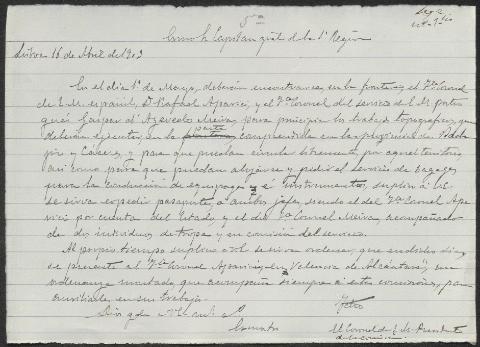 5ª
Excmo Sr Capitan gral de la 1ª Region
Lisboa 16 de Abril de 1903
En el dia 1º de Mayo, deberán encontrarse, en la frontera, el Tte Coronel
de E. M. español, D. Rafael Aparici, y el Tte Coronel del servicio de E M portu
gués Gaspar d'Azevedo Meira, para principiar los trabajos topograficos, que
deberán ejecutar, en la parte comprendida en las provincias de Bada
joz y Cáceres, y para que puedan circular libremente por aquel territorio,
asi como para que puedan alojarse y pedir el servicio de bagages
para la conduccion de equipages e instrumentos, suplico á VE
se sirva expedir pasaporte, á ambos jefes, siendo el del Tte Coronel Apa
rici por cuenta del Estado, y el del Tte Coronel Meira, acompañado
de dos individuos de tropa y en comision del servicio.
Al propio tiempo suplico á VE se sirva ordenar, que en dicho dia,
se presente al Tte Coronel Aparici, en Valencia de Alcántara, un
ordenanza montado, que acompañe siempre á estos comisarios, para
auxiliarle, en sus trabajos.
Dios gde a VE ms as
El Coronel de E. M. Presidente
de la comision